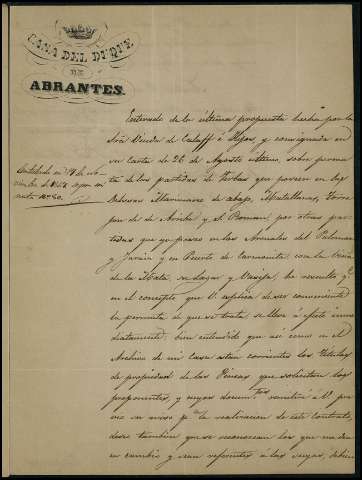 CASA DEL DUQUE
DE
ABRANTES.
Enterado de la última propuesta hecha por la
Sra. Viuda de é Hijos y consignada en
su Carta de 26 de Agosto último, sobre permu
ta de las partidas de Yerbas que poseen en las
Dehesas de abajo, Matallana, Torre
de Arriba y S. Roman, por otras par
tidas que yo poseo en los Arenales del Palomar
y Jarrin y en Puerto de con la Oliva
de la Mata, su Lagar y Vasija, he resuelto q.
en el concepto que V. esplica de ser conveniente
la permuta de que se trata, se lleve á efecto inme
diatamente, bien entendido que asi como en el
Archivo de mi Casa estan corrientes los titulos
de propiedad de las Fincas que solicitan los
proponentes, y cuyos docum.tos remitiré á V. pré
vio su aviso p.a la realizacion de este Contrato,
deseo tambien que se reconozcan los que me den
en cambio y sean referentes á las suyas, debien